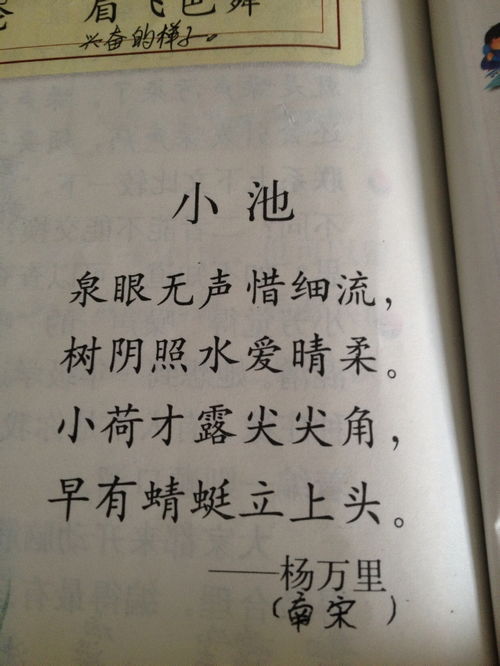 眉飞色舞
兴奋的样子。
小池
泉眼无声惜细流，
树阴照水爱晴柔。
小荷才露尖尖角，
早有蜻蜓立上头。
——杨万里
（南宋）